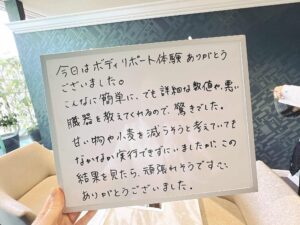 今日はボディリポート体験ありがとう
ございました。
こんなに簡単に、でも詳細な数値や、悪い
臓器を教えてくれるので、驚きでした。
甘い物や小麦を減らそうと考えていても
なかなか実行できずにいましたが、この
結果を見たら、頑張れそうです〜、
ありがとうございました。